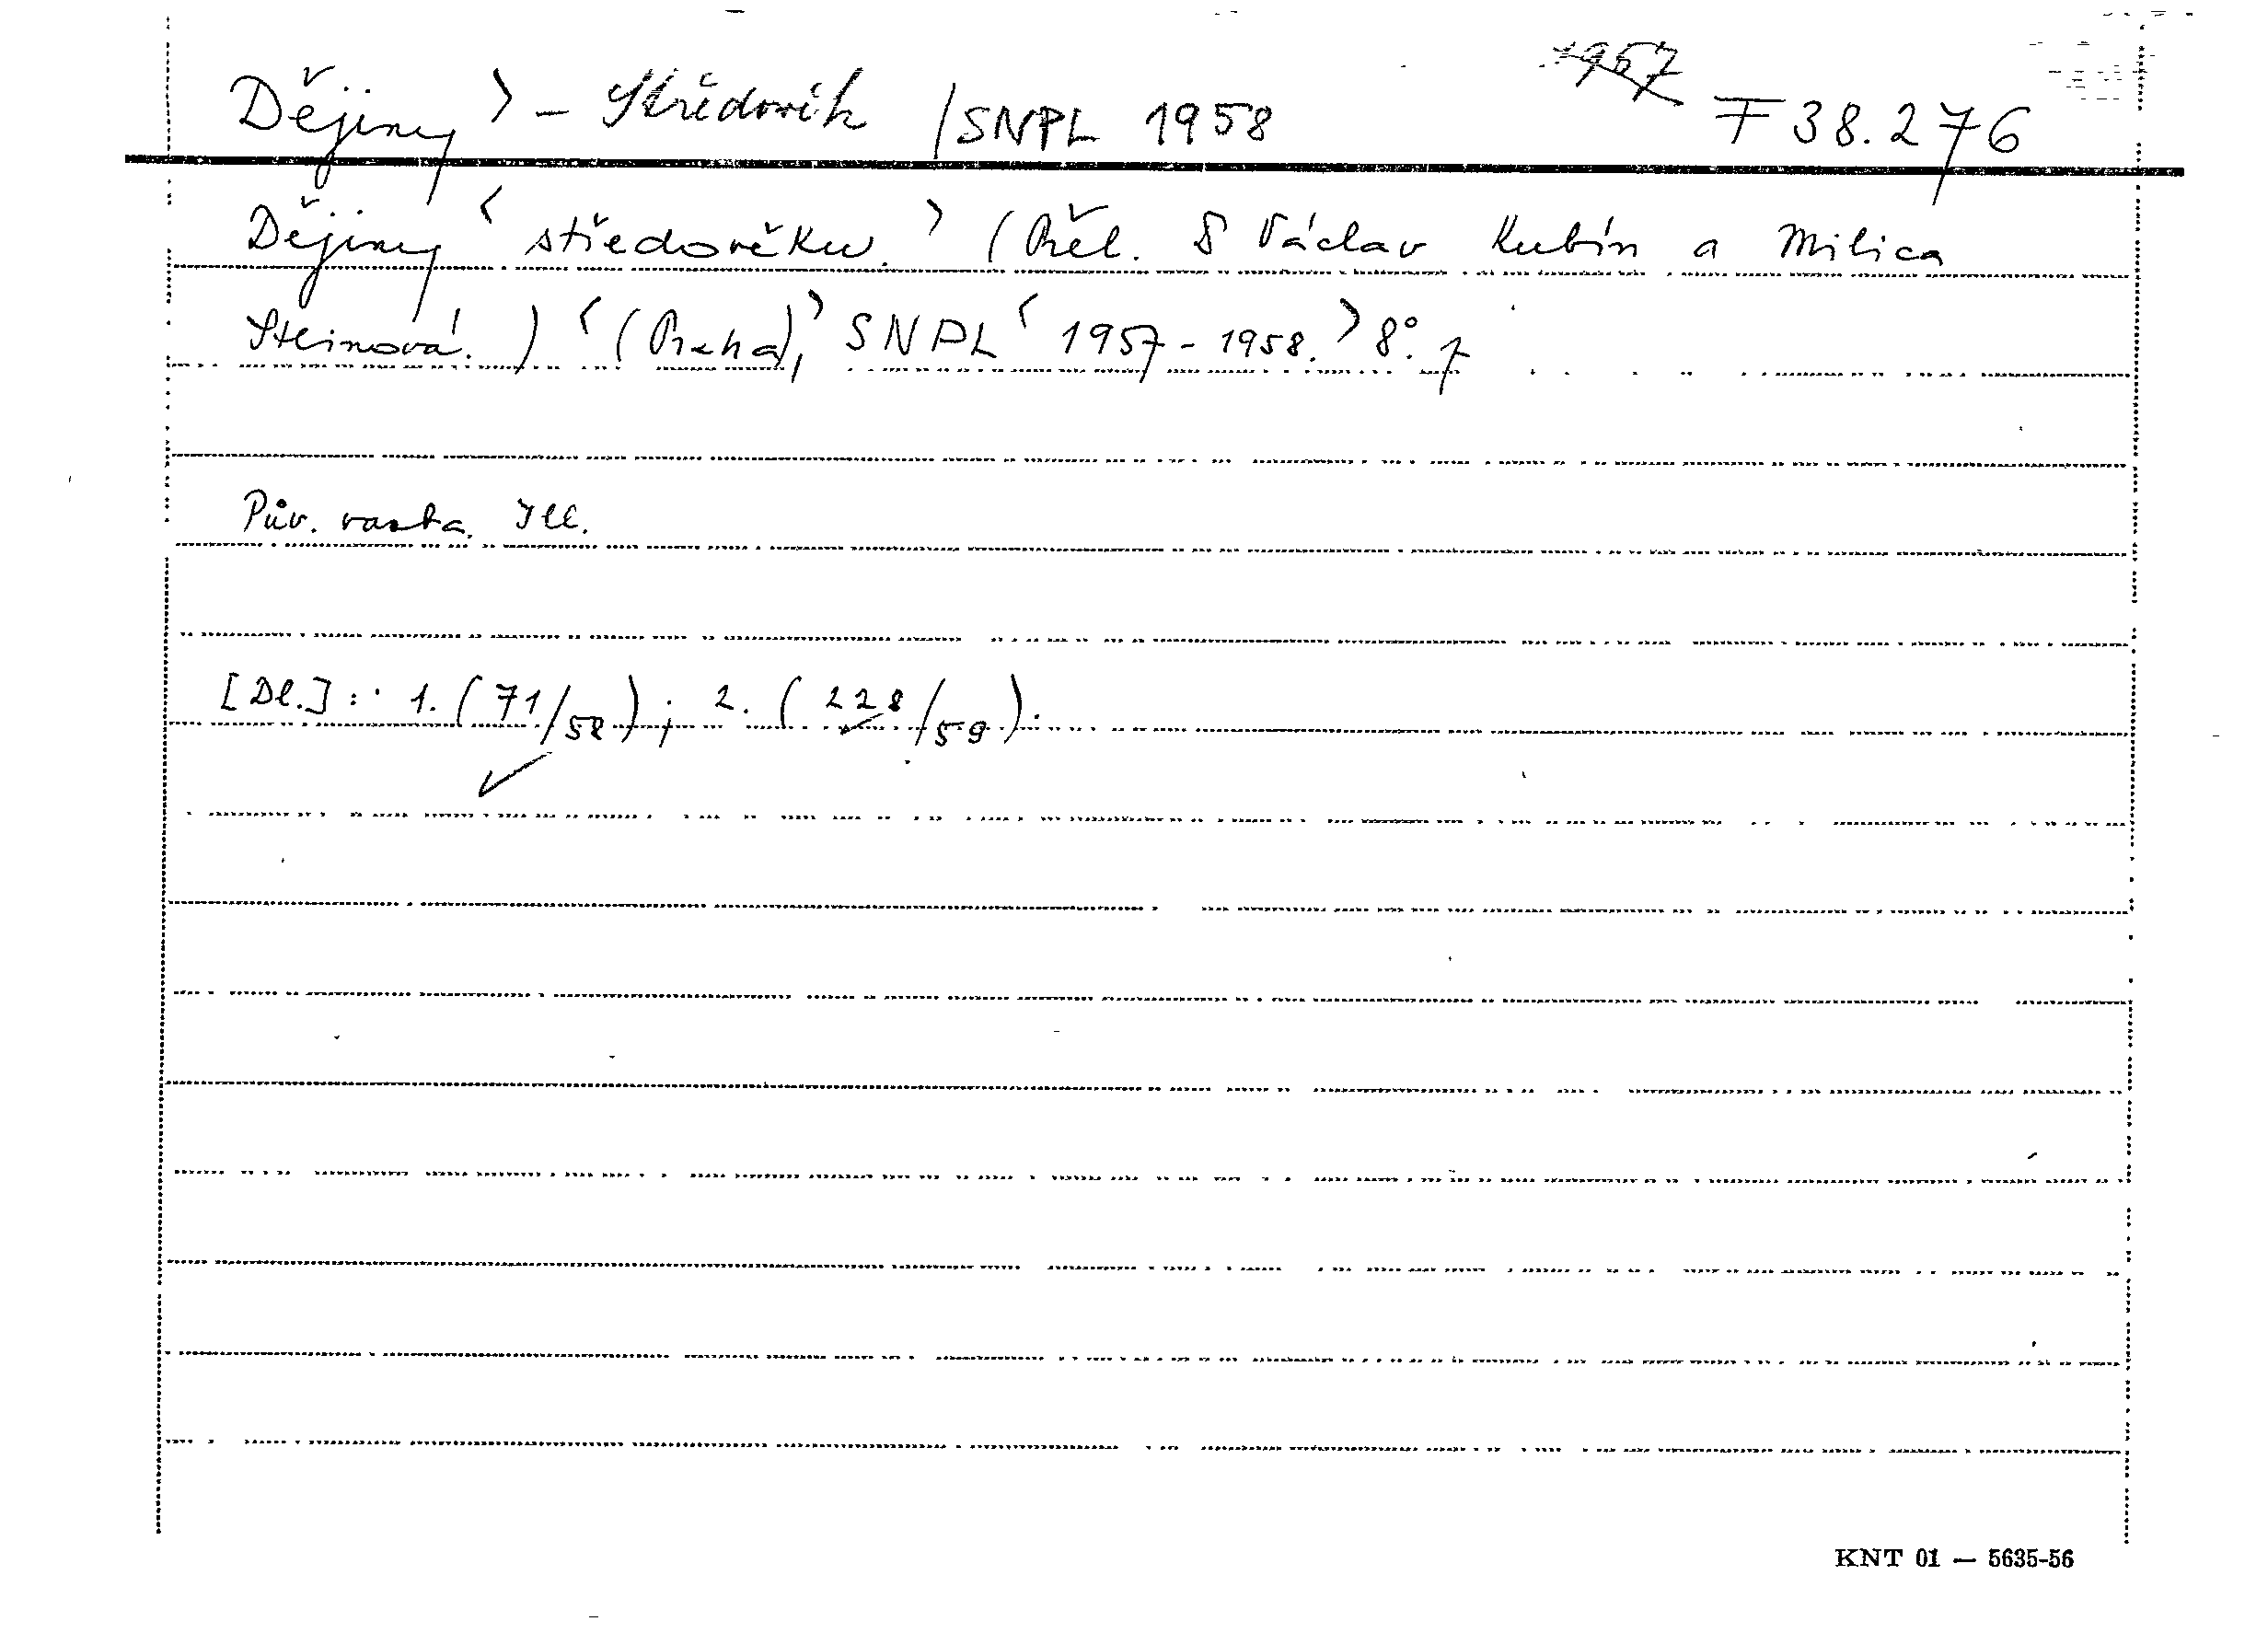 1957
Dějiny > – Středověk / SNPL 1958 F 38.276
Dějiny < středověku. > (Přel. Václav Kubín a Milica
Steinová.) < (Praha), > SNPL < 1957 - 1958. > 8°.
Pův. vazba. Ill.
[Dl.] : 1. (71/58) ; 2. (228/59).
KNT 01 — 5635-56